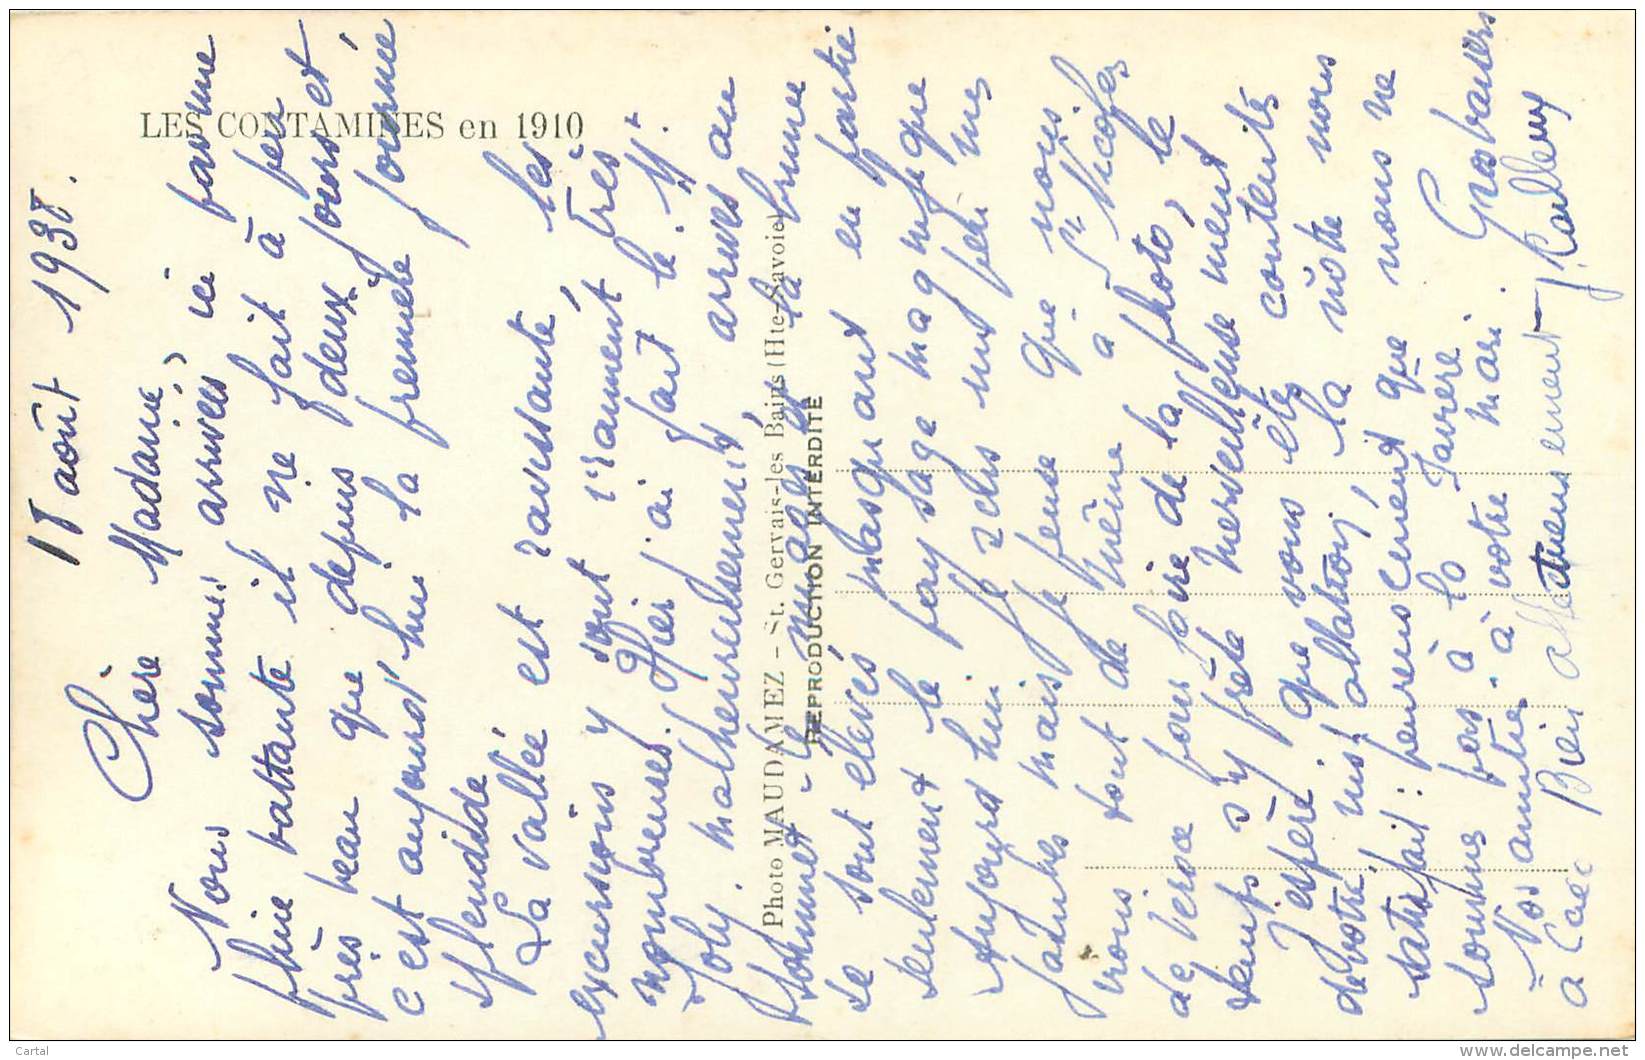 LES CONTAMINES en 1910
Photo MAUDAMEZ - St. Gervais-les Bains (Hte-Savoie)
REPRODUCTION INTERDITE
18 août 1938.
Chère Madame,
Nous sommes arrivées ici par une
pluie battante il ne fait à peu
près beau que depuis deux jours et
c'est aujourd'hui la première journée
splendide
La vallée est ravissante, les
excursions y sont vraiment très
nombreuses. Hier j'ai fait le M.
Joly. malheureusement, arrivés au
sommet les nuages et la brume
se sont élevés masquant en partie
seulement le paysage magnifique
Aujourd'hui je suis un peu
jambes mais je pense que nous
irons tout de même à St Nicolas
de Véroce pour faire de la photo, le
temps s'y prête merveilleusement
J'espère que vous êtes contents
de votre installation, la nôtre nous
satisfait : heureusement que nous ne
sommes pas à la
Nos amitiés à votre mari. Gros baisers
à
Bien affectueusement
Cartal
www.delcampe.net